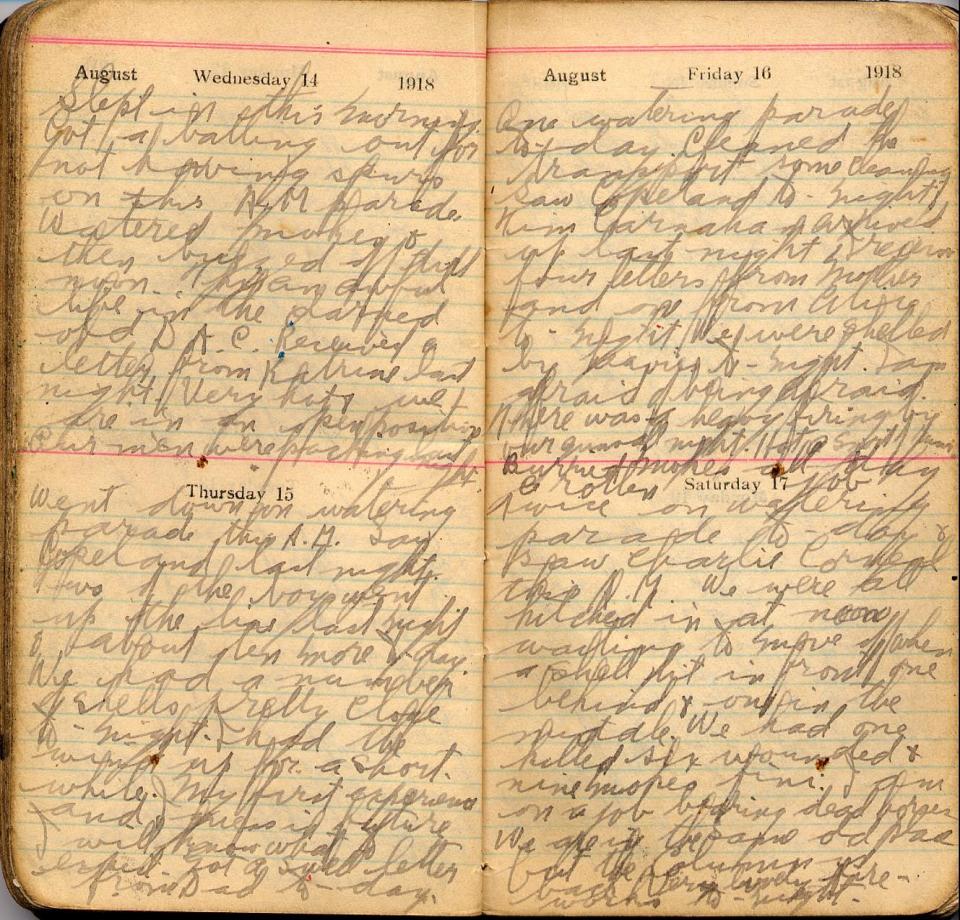 August Wednesday 14 1918
Slept in this morning.
Got a balling out for
not having spurs
on this A.M. parade.
Watered mules &
then till
noon. This an awful
life in the darned
old D.A.C. Received a
letter from Katrine last
night. Very hot & we
are in an open position
Our men were packing last night.
Thursday 15
Went down on watering
parade this A.M. Saw
Copeland last night.
Two of the boys went
up the line last night
& about ten more to-day.
We had a number
of shells pretty close
to-night. I had the
wind up for a short
while. My first experience
and I guess in future
will know what to
expect. Got a swell letter
from Dad to-day.
August Friday 16 1918
One watering parade
to-day. Cleaned the
transport some cleaning
Saw Copeland to-night
Kim Carnahan arrived
up last night. I received
four letters from Mother
and one from
to-night. We were shelled
by heavies to-night. I am
afraid of being afraid.
There was a heavy firing by
our guns at night.
Burried mules all day
a rotten job
Saturday 17
Twice on watering
parade to-day &
saw Charlie Corneal
this A.M. We were all
hitched in at noon
waiting to move off when
a shell hit in front one
behind & one in the
middle. We had one
killed six wounded &
nine mules fini. I am
on a job burying dead horses
We are in the same old place
but the column is
back. Very lively fire-
works to-night.